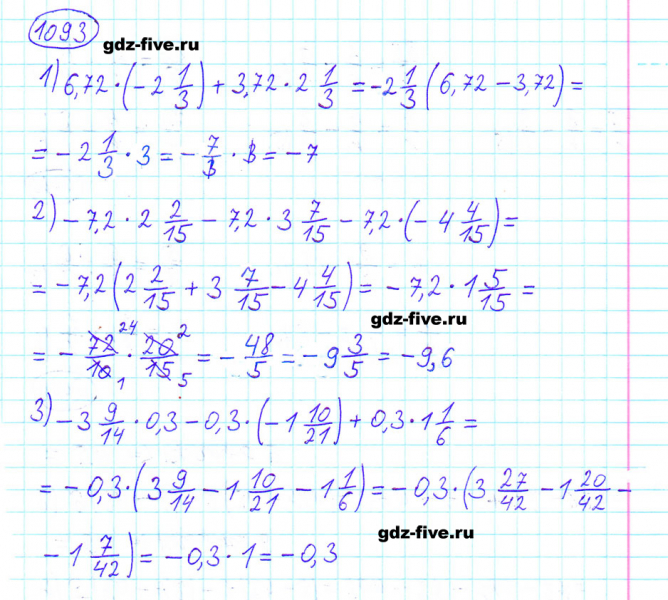 1093
gdz-five.ru
1) 6,72 · (-2 1/3) + 3,72 · 2 1/3 = -2 1/3 (6,72 - 3,72) =
= -2 1/3 · 3 = - 7/3 · 3 = -7
2) -7,2 · 2 2/15 - 7,2 · 3 7/15 - 7,2 · (-4 4/15) =
= -7,2 (2 2/15 + 3 7/15 - 4 4/15) = -7,2 · 1 5/15 =
gdz-five.ru
= - 72 24/10 1 · 20 2/15 5 = - 48/5 = -9 3/5 = -9,6
3) -3 9/14 · 0,3 - 0,3 · (-1 10/21) + 0,3 · 1 1/6 =
= -0,3 · (3 9/14 - 1 10/21 - 1 1/6) = -0,3 · (3 27/42 - 1 20/42 -
gdz-five.ru
- 1 7/42) = -0,3 · 1 = -0,3